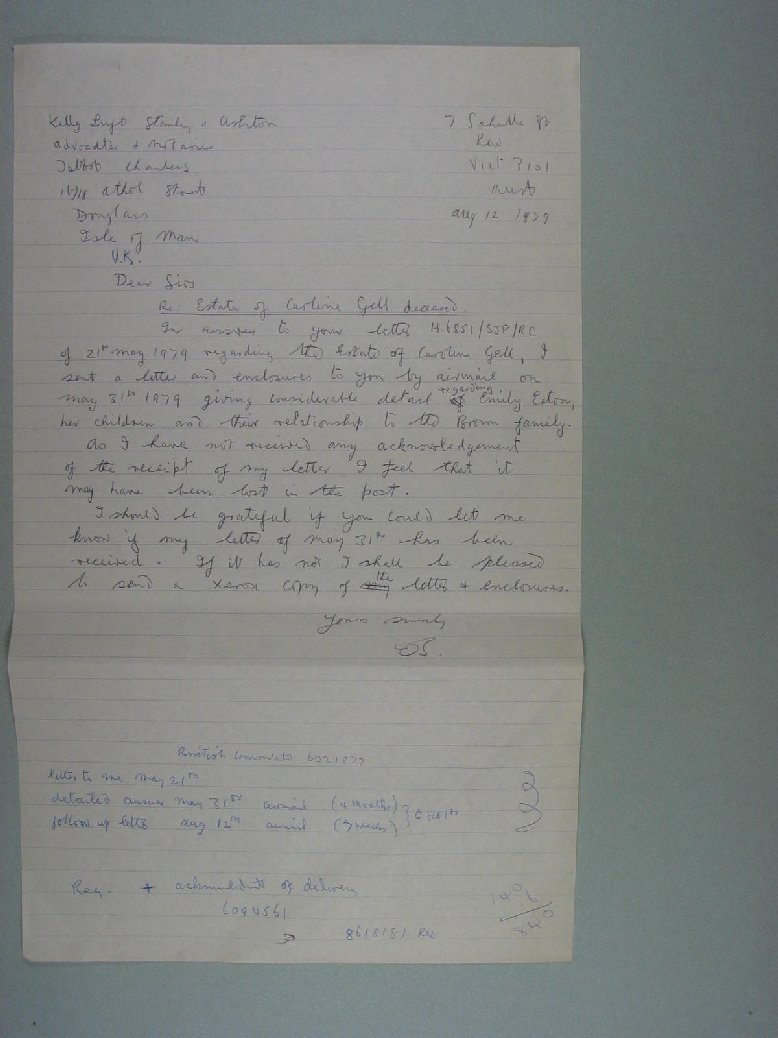 Kelly Luft Stanley & Ashton
advocates + notaries
Talbot Chambers
16/18 Athol Street
Douglas
Isle of Man
U.K.
7 St
Kew
Vict 3101
Aust
Aug 12 1979
Dear Sirs
Re: Estate of Caroline Gell deceased.
In answer to your letter H.6851/SJP/RC
of 21st May 1979 regarding the Estate of Caroline Gell, I
sent a letter and enclosures to you by airmail on
May 31st 1979 giving considerable detail regarding Emily
her children and their relationship to the Brown family.
As I have not received any acknowledgement
of the receipt of my letter I feel that it
may have been lost in the post.
I should be grateful if you could let me
know if my letter of May 31st has been
received. If it has not I shall be pleased
to send a xerox copy of the letter + enclosures.
Yours sincerely
British 6021277
letter to me May 21st
detailed answer May 31st airmail (4 months)
follow up letter Aug 12th airmail (7 weeks)
Reg. + of delivery
6094561
8618181
140
840